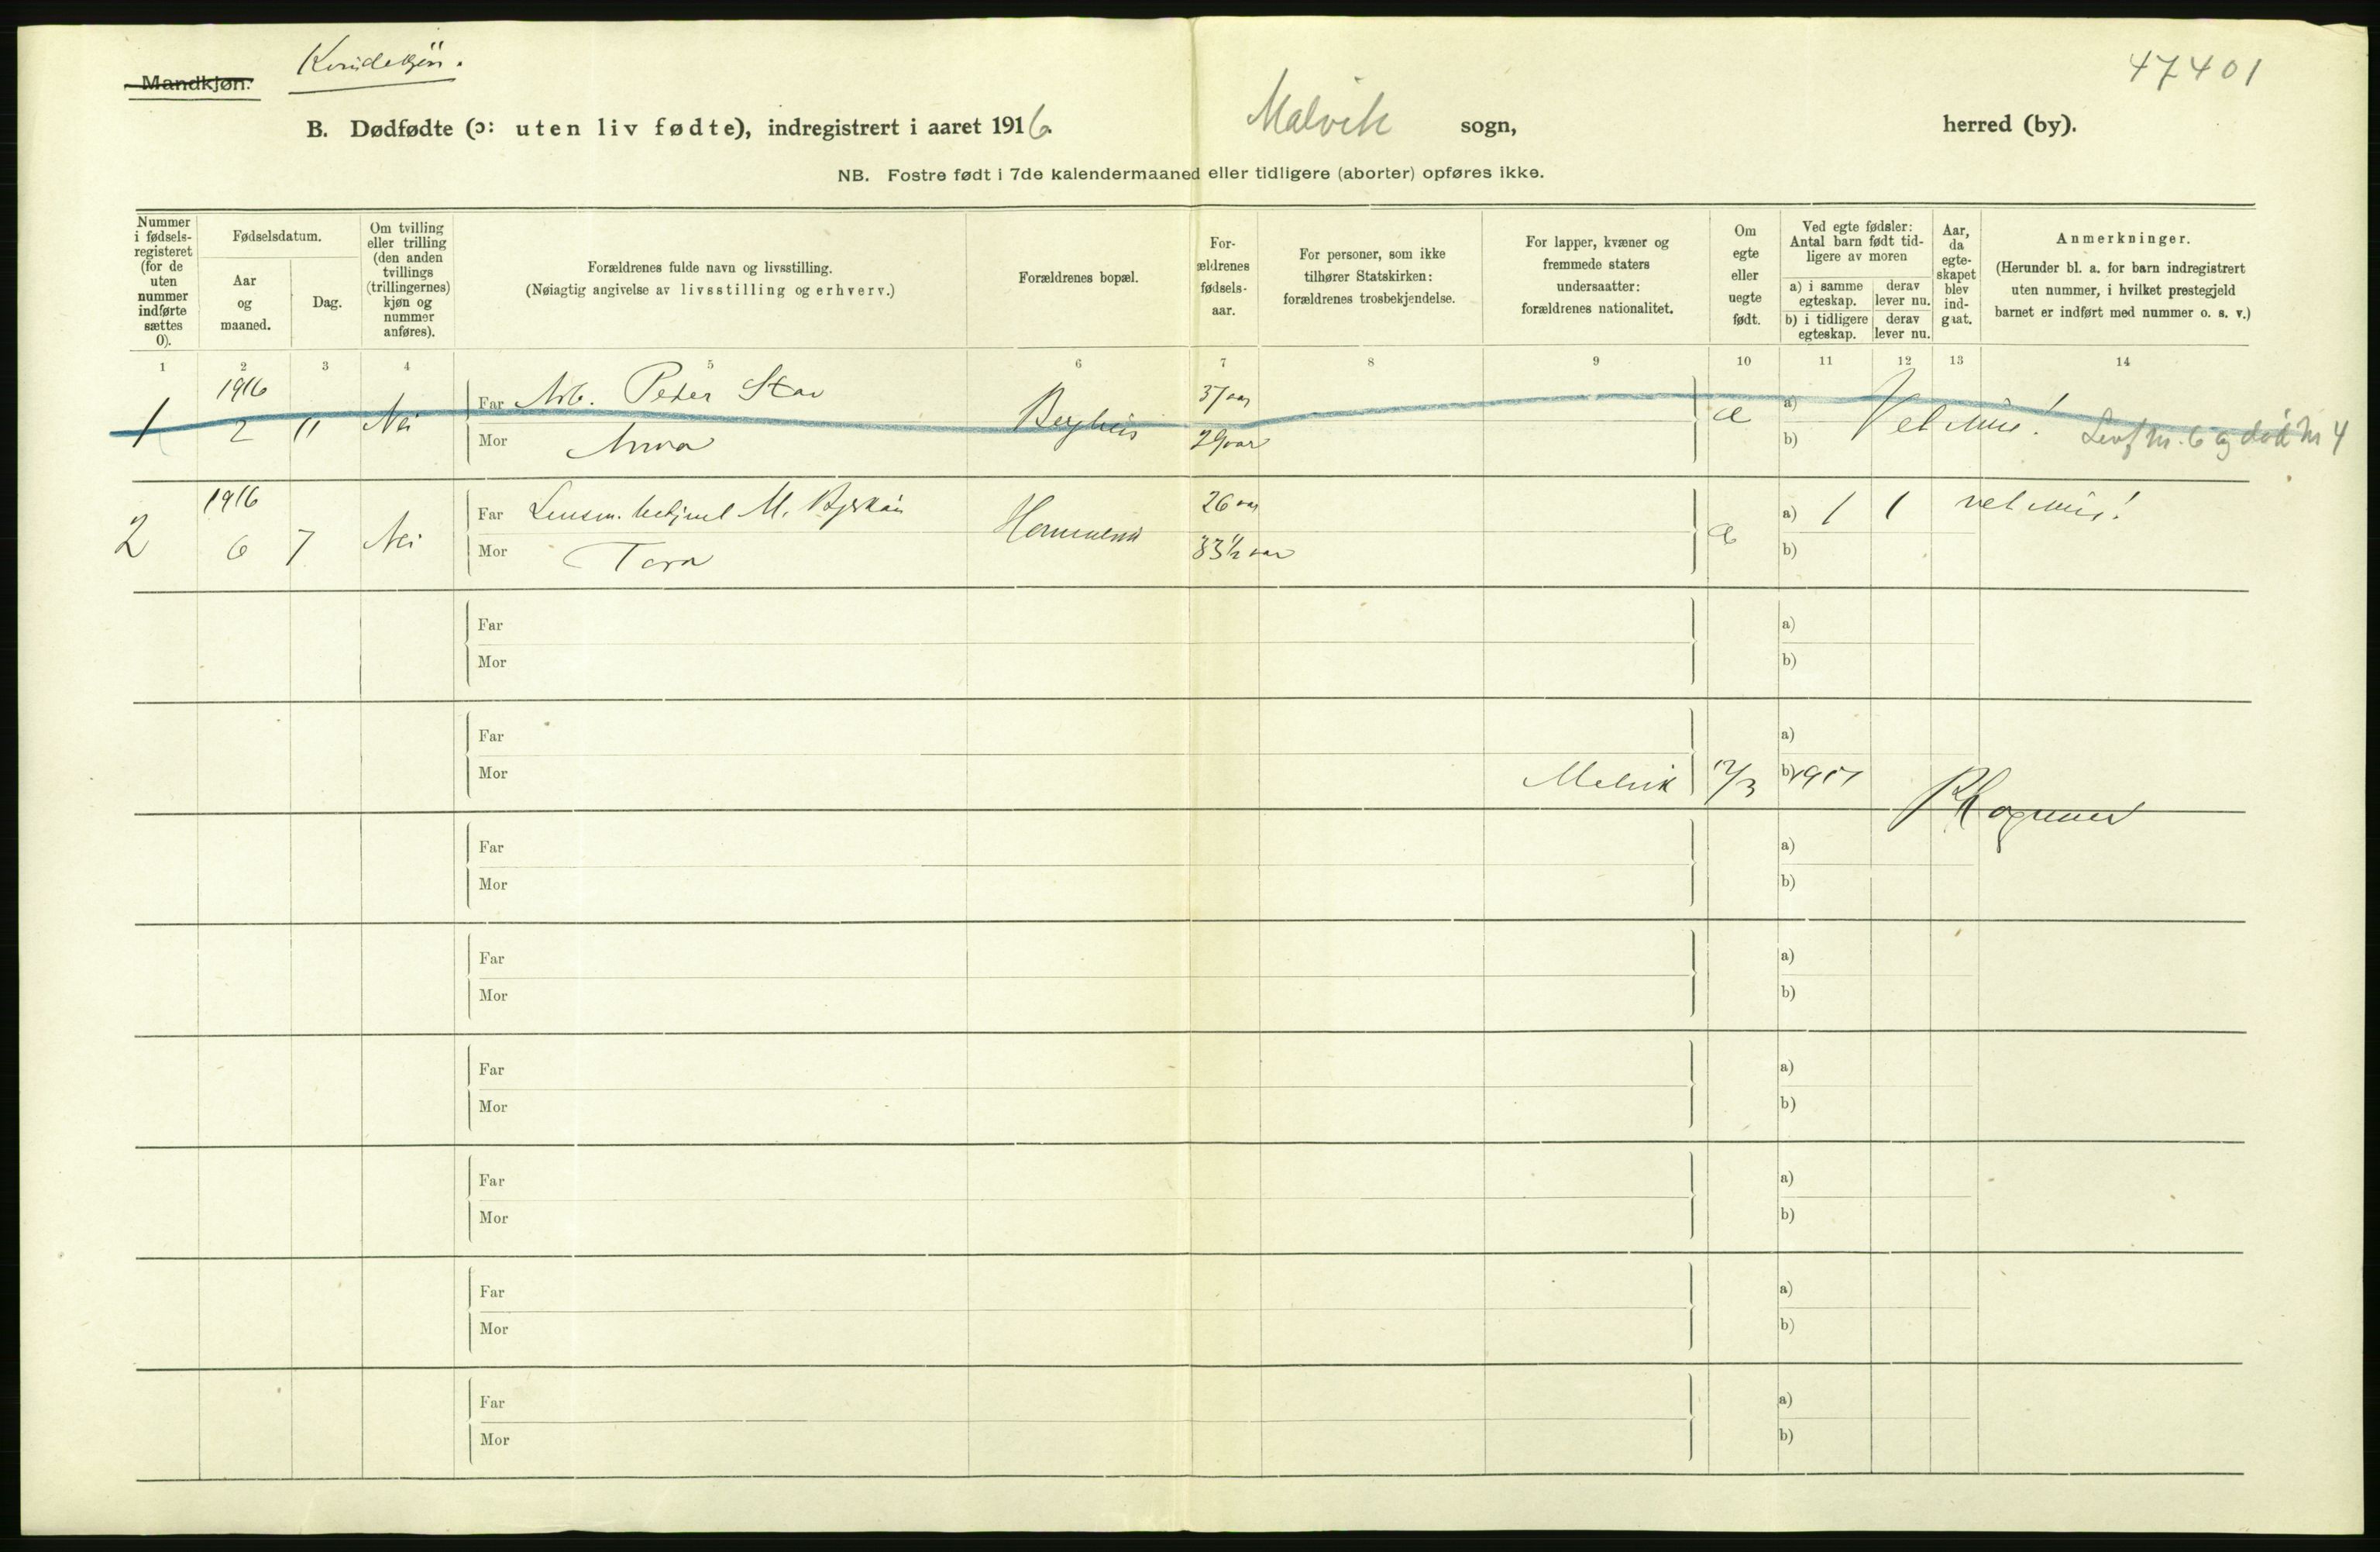 Mandkjøn. Kvindekjön.
47401
B. Dødfødte (ɔ: uten liv fødte), indregistrert i aaret 1916. Malvik sogn, herred (by).
NB. Fostre født i 7de kalendermaaned eller tidligere (aborter) opføres ikke.
Nummer i fødsels-registeret (for de uten nummer indførte sættes 0).
Fødselsdatum.
Aar og maaned.
Dag.
Om tvilling eller trilling (den anden tvillings (trillingernes) kjøn og nummer anføres).
Forældrenes fulde navn og livsstilling.
(Nøiagtig angivelse av livsstilling og erhverv.)
Forældrenes bopæl.
For-ældrenes fødsels-aar.
For personer, som ikke tilhører Statskirken: forældrenes trosbekjendelse.
For lapper, kvæner og fremmede staters undersaatter: forældrenes nationalitet.
Om egte eller uegte født.
Ved egte fødsler: Antal barn født tid-ligere av moren
a) i samme egteskap. derav lever nu.
b) i tidligere egteskap. derav lever nu.
Aar, da egte-skapet blev ind-gaat.
Anmerkninger.
(Herunder bl. a. for barn indregistrert uten nummer, i hvilket prestegjeld barnet er indført med nummer o. s. v.)
1 2 3 4 5 6 7 8 9 10 11 12 13 14
1 1916 2 11 Nei Far Arb. Peder Stav 37 aar a)
Mor Anna 29 aar b)
Levf nr. 6 og død nr 4
2 1916 6 7 Nei Far Lensm. M. 26 aar a) 1 1
Mor Tora 33½ aar b)
Far a)
Mor b)
Far a)
Mor Malvik 12/3 b) 1917
Far a)
Mor b)
Far a)
Mor b)
Far a)
Mor b)
Far a)
Mor b)
Far a)
Mor b)
Far a)
Mor b)